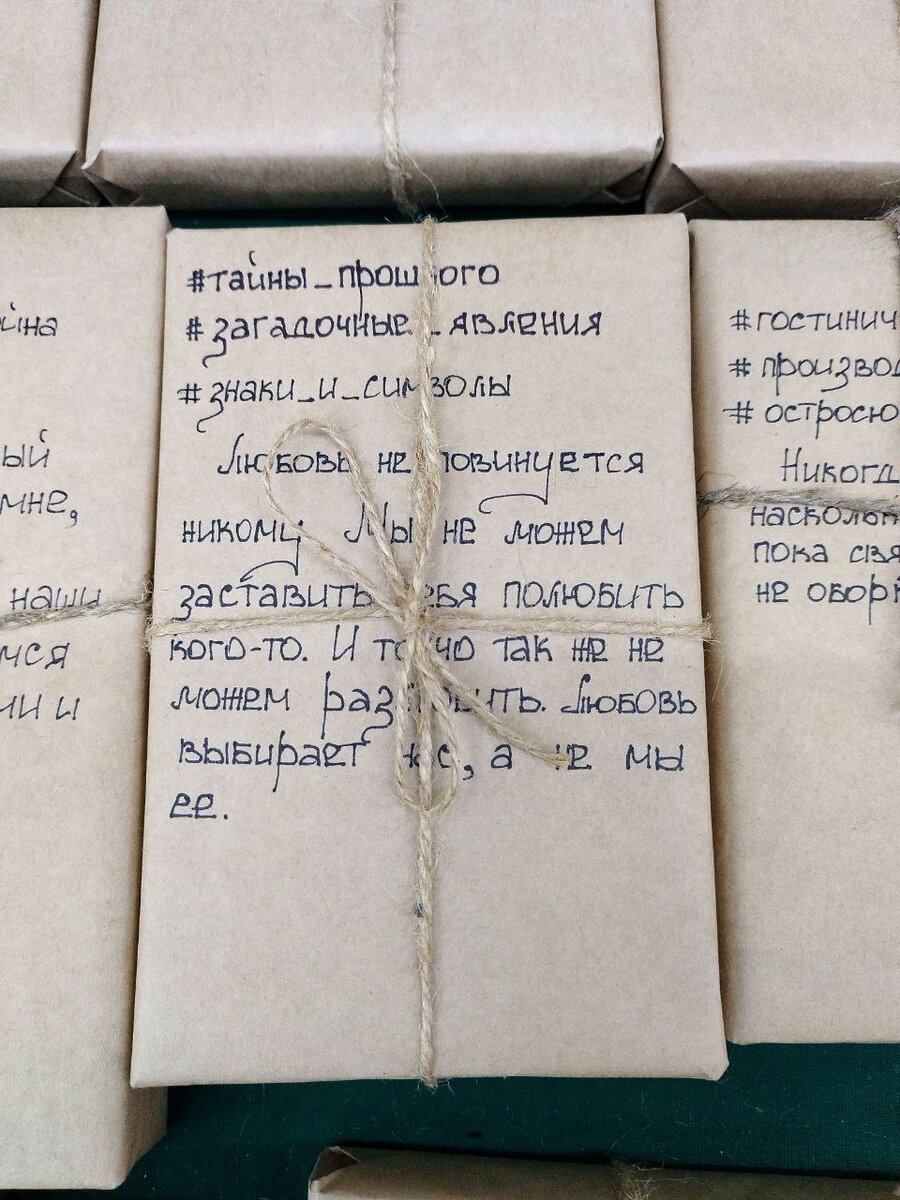 ый
мне,
наши
мся
#тайны_прошлого
#загадочные_явления
#знаки_и_символы
Любовь не повинуется
никому. Мы не можем
заставить себя полюбить
кого-то. И точно так же не
можем разлюбить. Любовь
выбирает нас, а не мы
ее.
#гостинич
#произво
#остросю
Никогд
насколь
пока свя
не обор